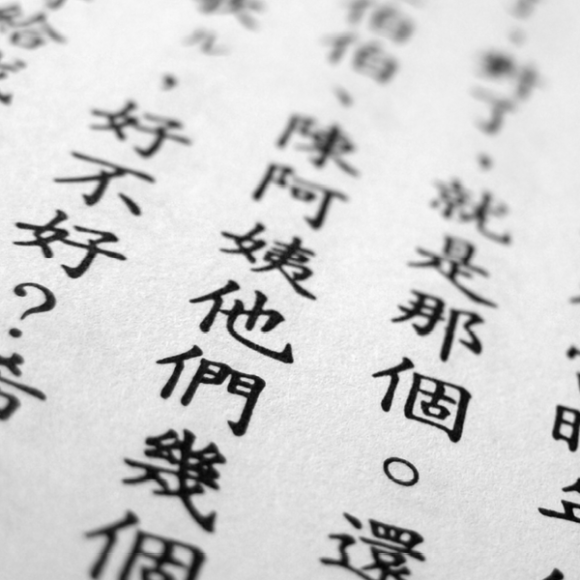 對了，就是那個。還
伯伯、陳阿姨他們幾個
，好不好？
給